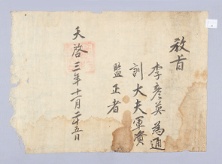 教旨
李彦英為通
訓大夫軍資
監正者
天啓三年十一月二十五日